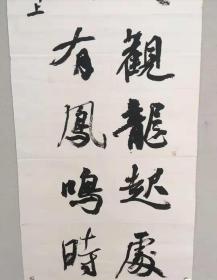 觀龍起處
有鳳鳴時
上